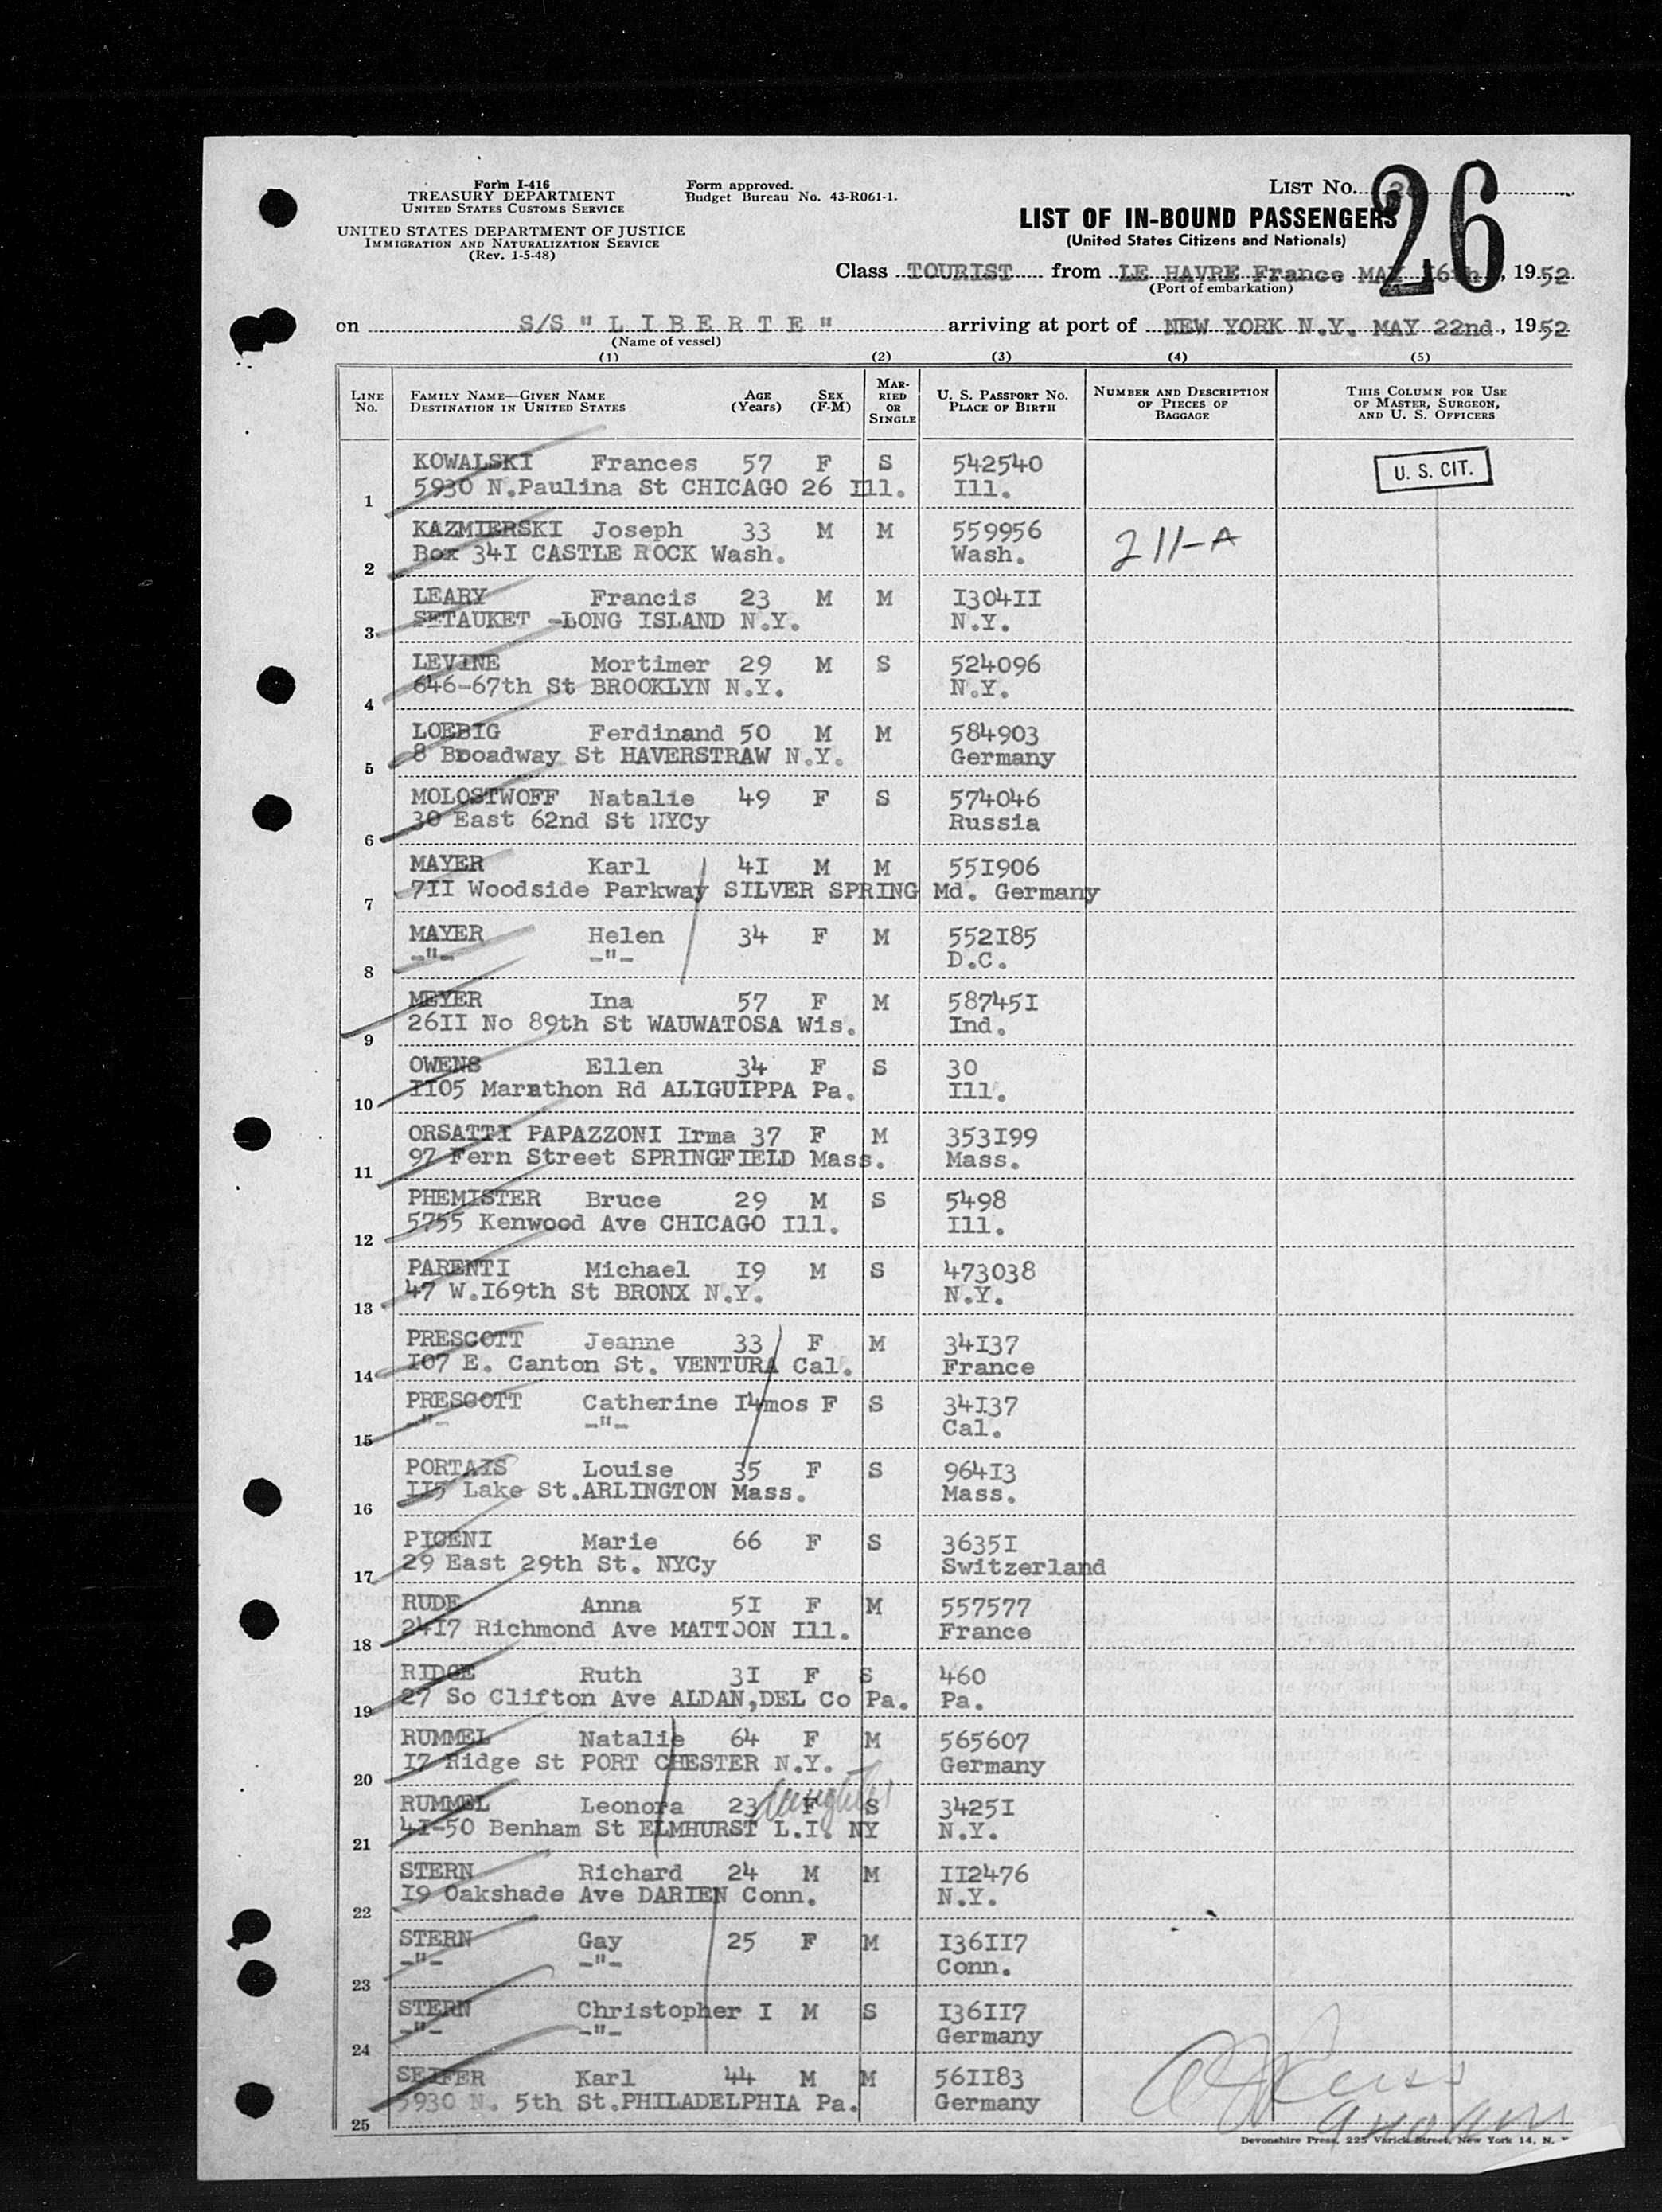 Form I-416
TREASURY DEPARTMENT
UNITED STATES CUSTOMS SERVICE
UNITED STATES DEPARTMENT OF JUSTICE
IMMIGRATION AND NATURALIZATION SERVICE
(Rev. 1-5-48)
Form approved.
Budget Bureau No. 43-R061-1.
LIST NO.
26
LIST OF IN-BOUND PASSENGERS
(United States Citizens and Nationals)
Class TOURIST from LE HAVRE France MAY 16th, 1952
(Port of embarkation)
on S/S "LIBERTE" arriving at port of NEW YORK N.Y. MAY 22nd, 1952
(Name of vessel)
(1) (2) (3) (4) (5)
LINE No. FAMILY NAME—GIVEN NAME DESTINATION IN UNITED STATES AGE (Years) SEX (F-M) MARRIED OR SINGLE U. S. PASSPORT NO. PLACE OF BIRTH NUMBER AND DESCRIPTION OF PIECES OF BAGGAGE THIS COLUMN FOR USE OF MASTER, SURGEON, AND U. S. OFFICERS
KOWALSKI Frances 57 F S 542540 U. S. CIT.
1 5930 N.Paulina St CHICAGO 26 Ill. Ill.
KAZMIERSKI Joseph 33 M M 559956 211-A
2 Box 34I CASTLE ROCK Wash. Wash.
LEARY Francis 23 M M I304II
3 SETAUKET -LONG ISLAND N.Y. N.Y.
LEVINE Mortimer 29 M S 524096
4 646-67th St BROOKLYN N.Y. N.Y.
LOEBIG Ferdinand 50 M M 584903
5 8 Broadway St HAVERSTRAW N.Y. Germany
MOLOSTWOFF Natalie 49 F S 574046
6 30 East 62nd St NYCy Russia
MAYER Karl 4I M M 55I906
7 7II Woodside Parkway SILVER SPRING Md. Germany
MAYER Helen 34 F M 552I85
8 -"- -"- D.C.
MEYER Ina 57 F M 58745I
9 26II No 89th St WAUWATOSA Wis. Ind.
OWENS Ellen 34 F S 30
10 II05 Marathon Rd ALIGUIPPA Pa. Ill.
ORSATTI PAPAZZONI Irma 37 F M 353I99
11 97 Fern Street SPRINGFIELD Mass. Mass.
PHEMISTER Bruce 29 M S 5498
12 5755 Kenwood Ave CHICAGO Ill. Ill.
PARENTI Michael I9 M S 473038
13 47 W.I69th St BRONX N.Y. N.Y.
PRESCOTT Jeanne 33 F M 34I37
14 I07 E. Canton St. VENTURA Cal. France
PRESCOTT Catherine I4mos F S 34I37
15 -"- -"- Cal.
PORTAIS Louise 35 F S 964I3
16 II5 Lake St.ARLINGTON Mass. Mass.
PIGENI Marie 66 F S 3635I
17 29 East 29th St. NYCy Switzerland
RUDE Anna 5I F M 557577
18 24I7 Richmond Ave MATTOON Ill. France
RIDGE Ruth 3I F S 460
19 27 So Clifton Ave ALDAN,DEL Co Pa. Pa.
RUMMEL Natalie 64 F M 565607
20 I7 Ridge St PORT CHESTER N.Y. Germany
daughter
RUMMEL Leonora 23 F S 3425I
21 4I-50 Benham St ELMHURST L.I. NY N.Y.
STERN Richard 24 M M II2476
22 I9 Oakshade Ave DARIEN Conn. N.Y.
STERN Gay 25 F M I36II7
23 -"- -"- Conn.
STERN Christopher I M S I36II7
24 -"- -"- Germany
SEIFER Karl 44 M M 56II83
25 5930 N. 5th St.PHILADELPHIA Pa. Germany
Devonshire Press, 225 Varick Street, New York 14, N.